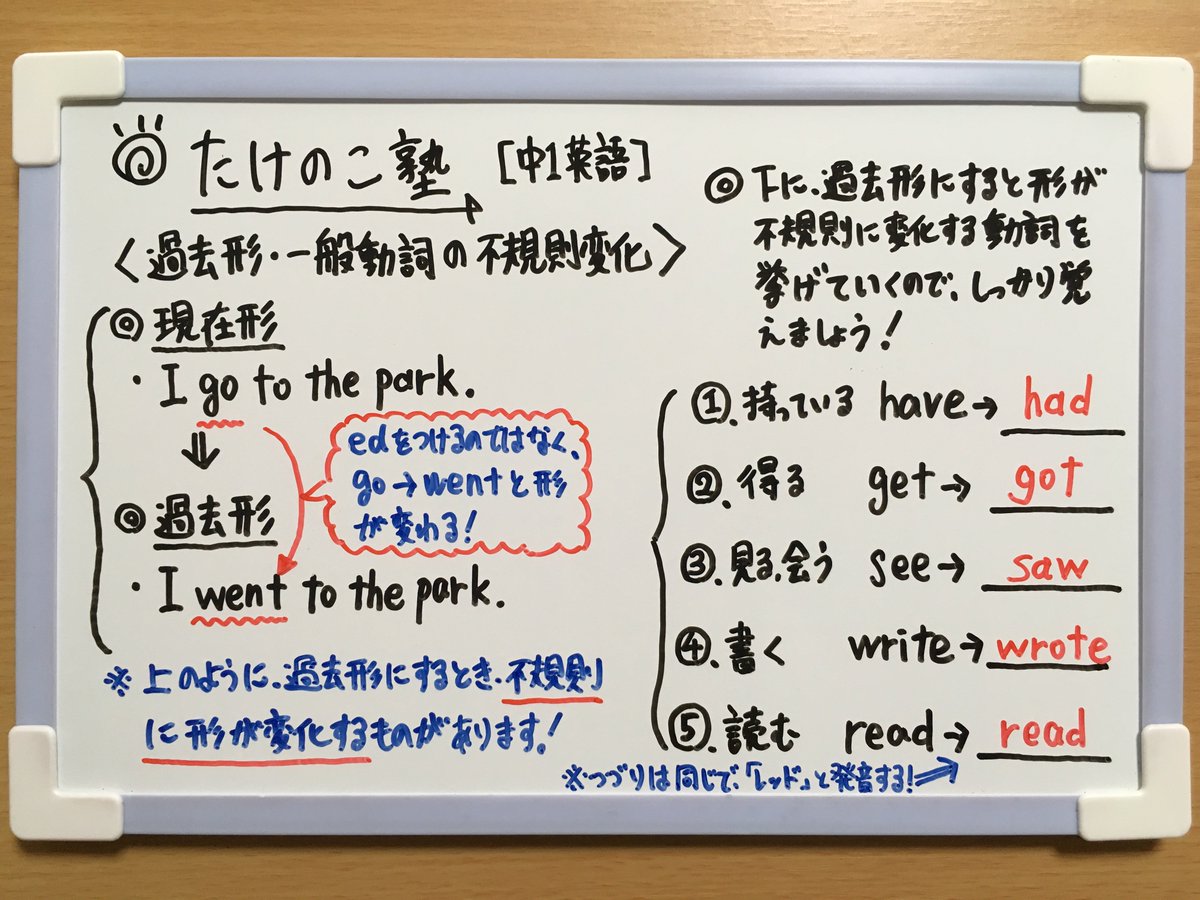 たけのこ塾 [中1英語]
〈過去形・一般動詞の不規則変化〉
◎現在形
・I go to the park.
⇓
edをつけるのではなく、
go→wentと形
が変わる!
◎過去形
・I went to the park.
※上のように、過去形にするとき、不規則
に形が変化するものがあります!
◎下に、過去形にすると形が
不規則に変化する動詞を
挙げていくので、しっかり覚
えましょう!
①.持っている have→ had
②.得る get→ got
③.見る、会う see→ saw
④.書く write→ wrote
⑤.読む read→ read
※つづりは同じで、「レッド」と発音する!⇒